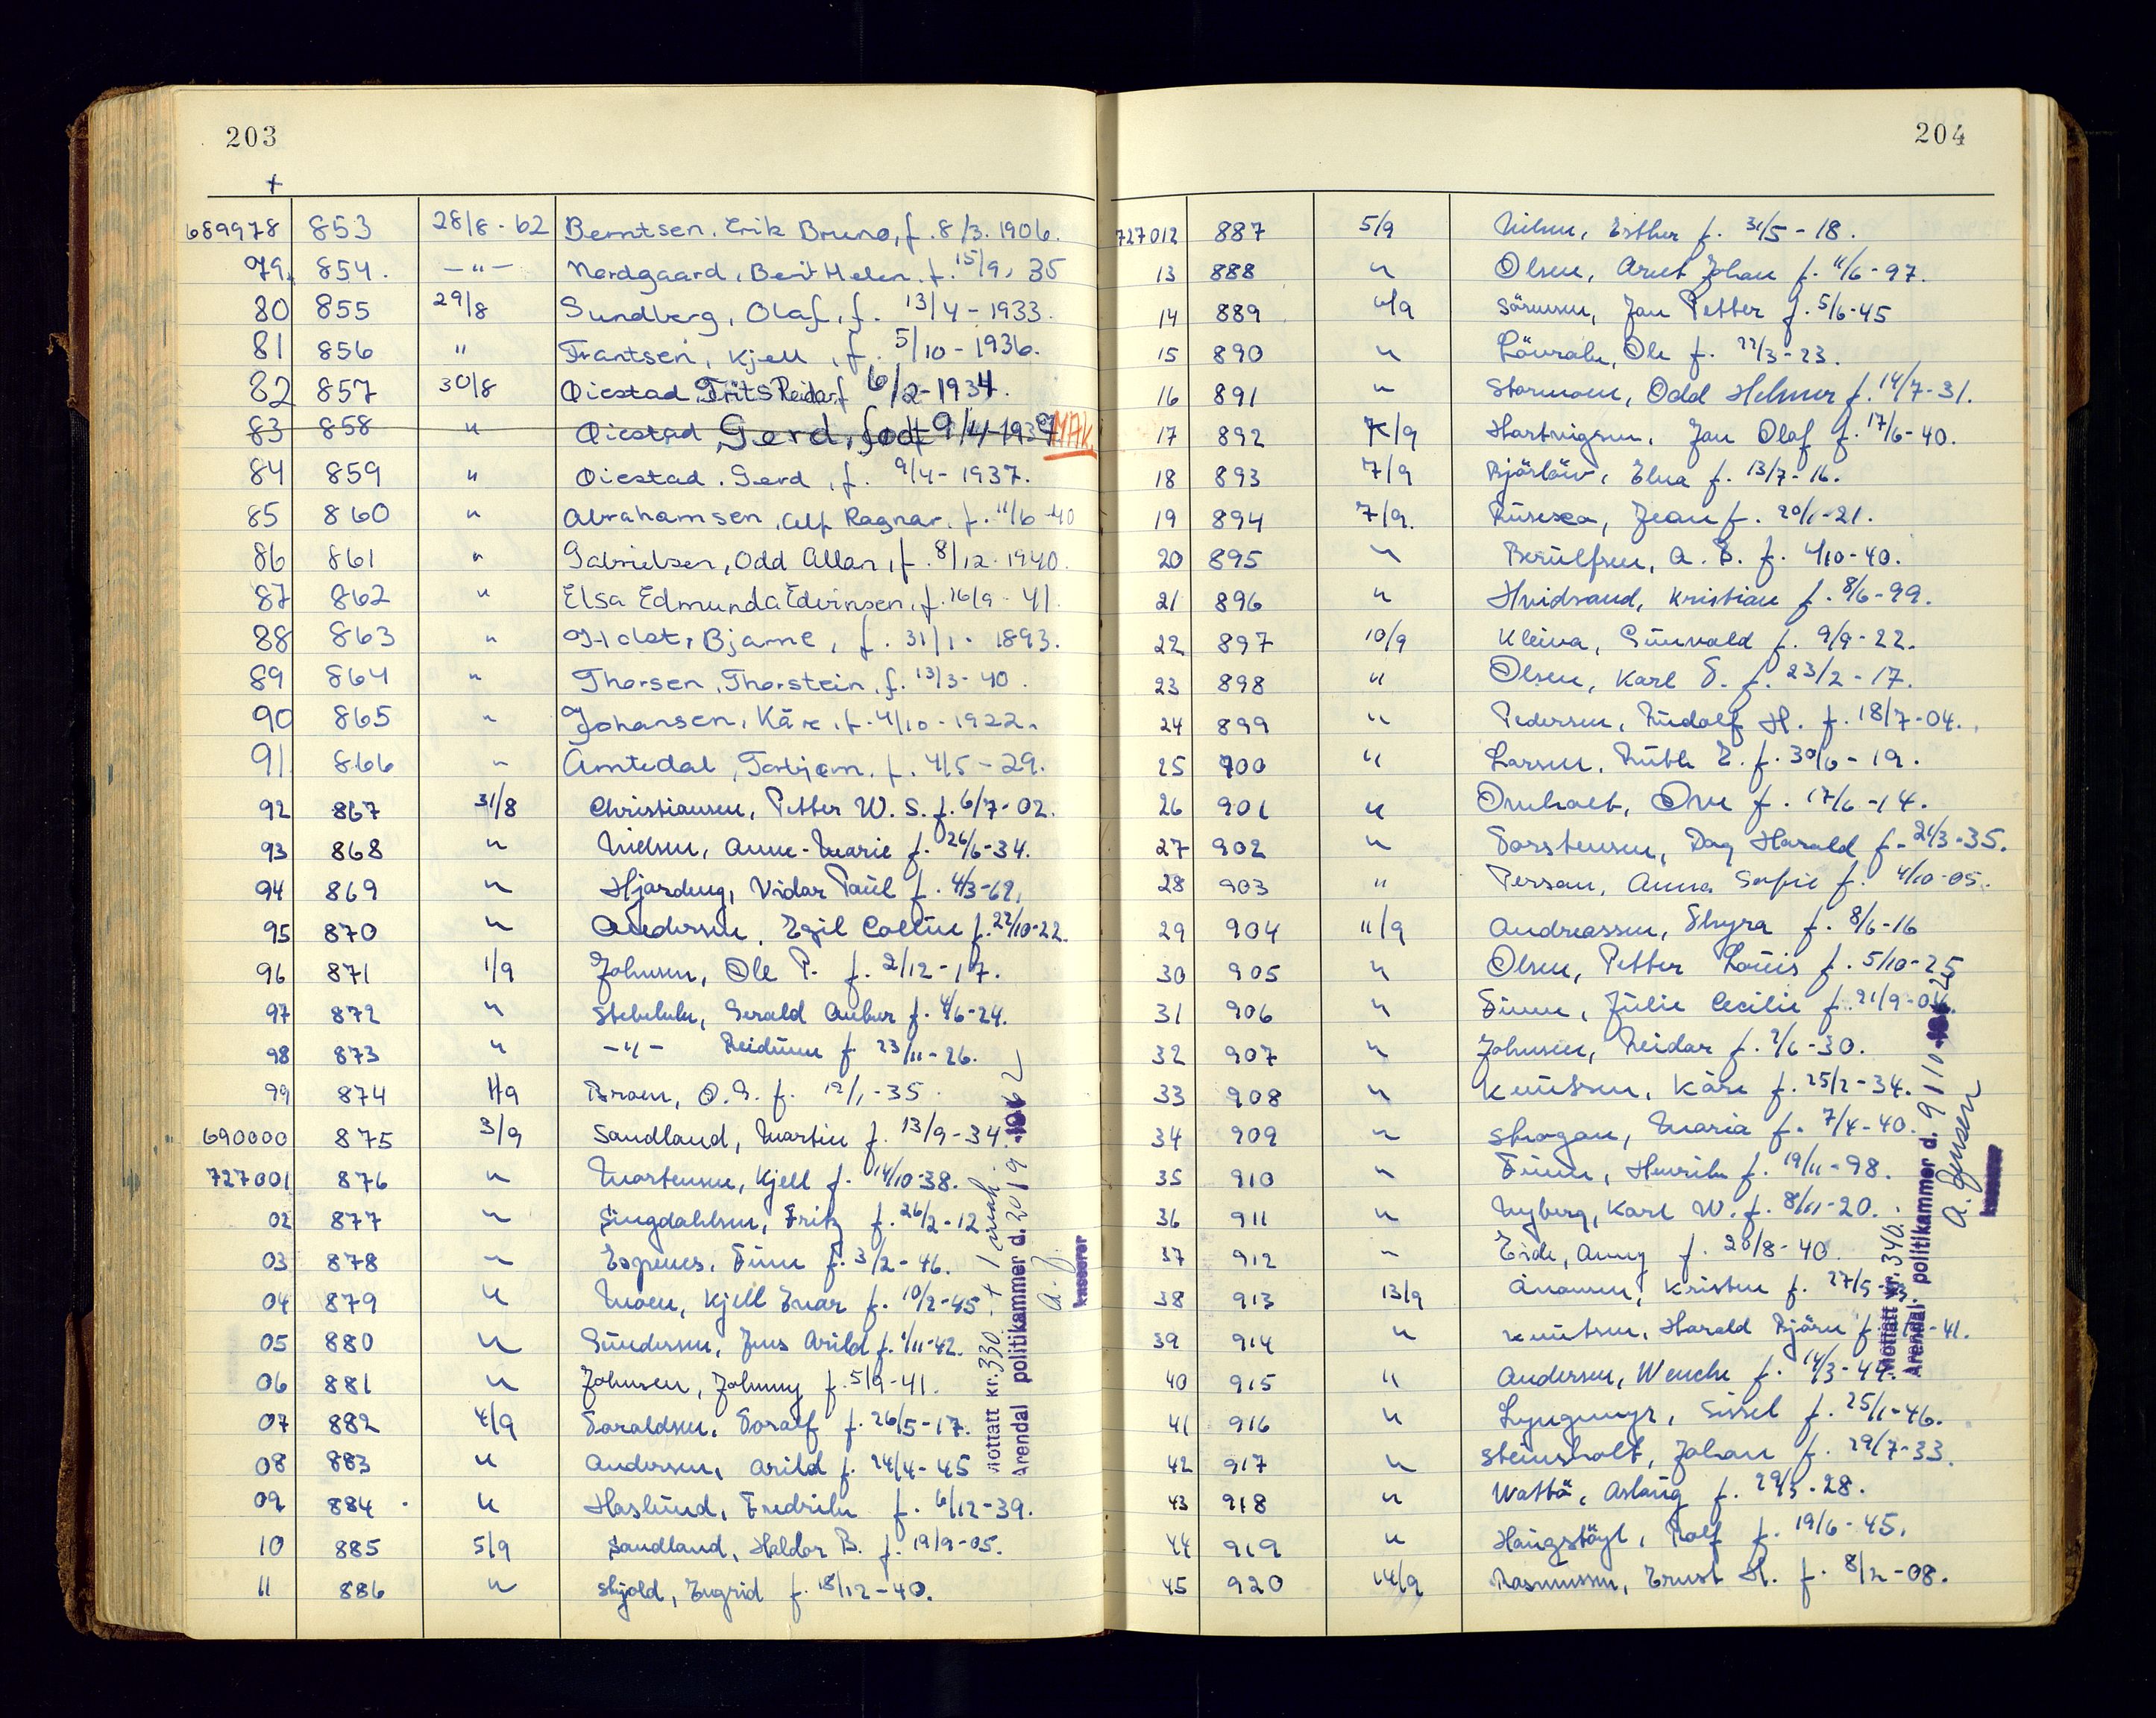 203
+
689978 853 28/8-62 Berntsen, Erik Bruno, f. 8/3. 1906.
79. 854. -"- Nordgaard, Berit Helen. f. 15/9, 35
80 855 29/8 Sundberg, Olaf, f. 13/4-1933.
81 856 " Frantsen, Kjell, f. 5/10-1936.
82 857 30/8 Øiestad, Frits Reidar f 6/2-1934.
83 858 " Øiestad, Gerd, født 9/4-1937 MAK.
84 859 " Øiestad. Gerd, f. 9/4-1937.
85 860 " Abrahamsen, Alf Ragnar. f. 11/6-40
86 861 " Gabrielsen, Odd Allan, f. 8/12. 1940.
87 862 " Elsa Edmunda Edvinsen, f. 16/9-41.
88 863 " Holst, Bjarne, f. 31/1. 1893.
89 864 " Thorsen, Thorstein, f. 13/3-40.
90 865 " Johansen, Kåre, f. 4/10-1922.
91 866 " Amtedal, Torbjørn. f. 4/5-29.
92 867 31/8 Christiansen, Petter W. S. f. 6/7-02.
93 868 " Nielsen, Anne-Marie f. 26/6-34.
94 869 " Hjardeng, Vidar Paul f. 4/3-62.
95 870 " Andersen, Egil Collin f. 22/10-22.
96 871 1/9 Johnsen, Ole P. f. 2/12-17.
97 872 " Gerald f. 4/6-24.
98 873 " -"- Reidunn f. 23/11-26.
99 874 1/9 Broen, O. G. f. 12/1-35.
690000 875 3/9 Sandland, Martin f. 13/9-34.
727001 876 " Mortensen, Kjell f. 14/10-38.
02 877 " Singdahlsen, Fritz f. 26/2-12
03 878 " Espenes, Finn f. 3/2-46.
04 879 " Moen, Kjell Ivar f. 10/2-45
05 880 " Gundersen, Jens Arild f. 1/11-42.
06 881 " Johnsen, Johnny f. 5/9-41.
07 882 4/9 Taraldsen, Toralf f. 26/5-17.
08 883 " Andersen, Arild f. 24/4-45
09 884 " Haslund, Fredrik f. 6/12-39.
10 885 5/9 Sandland, Haldor B. f. 19/9-05.
11 886 " Skjold, Ingrid f. 18/12-40.
Mottatt kr. 330.-
Arendal politikammer d. 20/9 1962
A. J.
kasserer
204
727012 887 5/9 Nilsen, Esther f. 31/5-18.
13 888 " Olsen, Arnt Johan f. 11/6-97.
14 889 6/9 Sörensen, Jan Petter f. 5/6-45
15 890 " Lövrak, Ole f. 22/3-23.
16 891 " Stormoen, Odd Helmer f. 14/7-31.
17 892 7/9 Hartvigsen, Jan Olaf f. 17/6-40.
18 893 7/9 Elna f. 13/7-16.
19 894 7/9. Jean f. 20/1-21.
20 895 " Berulfsen, A. B. f. 4/10-40.
21 896 " Hvidsand, Kristian f. 8/6-99.
22 897 10/9 Kleiva, Gunvald f. 9/9-22.
23 898 " Olsen, Karl T. f. 23/2-17.
24 899 " Pedersen, Rudolf H. f. 18/7-04.
25 900 " Larsen, Ruth E. f. 30/6-19.
26 901 " Omholt, Ove f. 17/6-14.
27 902 " Torstensen, Dag Harald f. 21/3-35.
28 903 " Persen, Anna Sofie f. 4/10-05.
29 904 11/9 Andreassen, Thyra f. 8/6-16
30 905 " Olsen, Petter Louis f. 5/10-25
31 906 " Finne, Julie Cecilie f. 21/9-04.
32 907 " Johnsen, Reidar f. 2/6-30.
33 908 " Knutsen, Kåre f. 25/2-34.
34 909 " Skogan, Maria f. 7/4-40.
35 910 " Finne, Henrik f. 19/11-98.
36 911 " Nyberg, Karl W. f. 8/11-20.
37 912 " Eide, Anny f. 20/8-40.
38 913 13/9 Kristen f. 27/5
39 914 " Knutsen, Harald Björn f. -41.
40 915 " Andersen, Wenche f. 14/3-44.
41 916 " Lyngmyr, Sissel f. 25/1-46.
42 917 " Steinsholt, Johan f. 29/7-33.
43 918 " Aslaug f. 29/3-28.
44 919 " Haugstöyl, Rolf f. 19/6-45.
45 920 14/9 Rasmussen, Ernst H. f. 8/2-08.
Mottatt kr. 340.-
Arendal politikammer d. 9/10
A. Jensen
kasserer